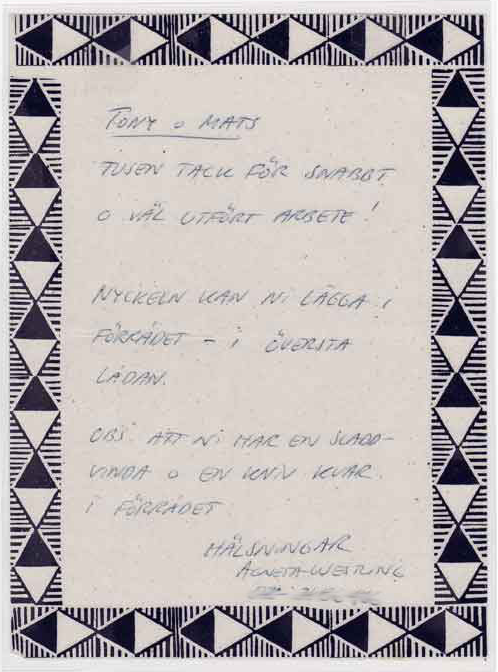 TONY o MATS
TUSEN TACK FÖR SNABBT
O VÄL UTFÖRT ARBETE!
NYCKELN KAN NI LÄGGA I
FÖRRÅDET - I ÖVERSTA
LÅDAN.
OBS! ATT NI HAR EN SLADD-
VINDA O EN KNIV KVAR
I FÖRRÅDET
HÄLSNINGAR
AGNETA WESTLING